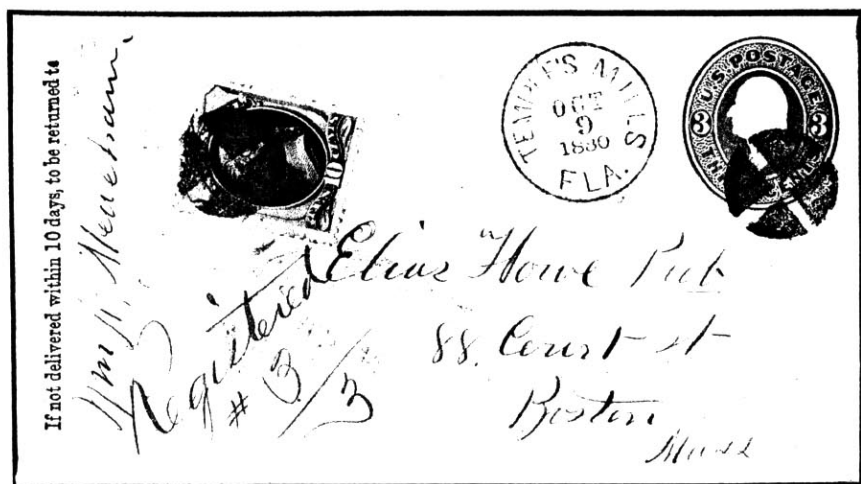 If not delivered within 10 days, to be returned to
Wm
TEMPLE'S MILLS
OCT
9
1880
FLA.
U.S. POSTAGE
3 3
10
Registered
# 3/3
Elias Howe Pub
88. Court st
Boston
Mass